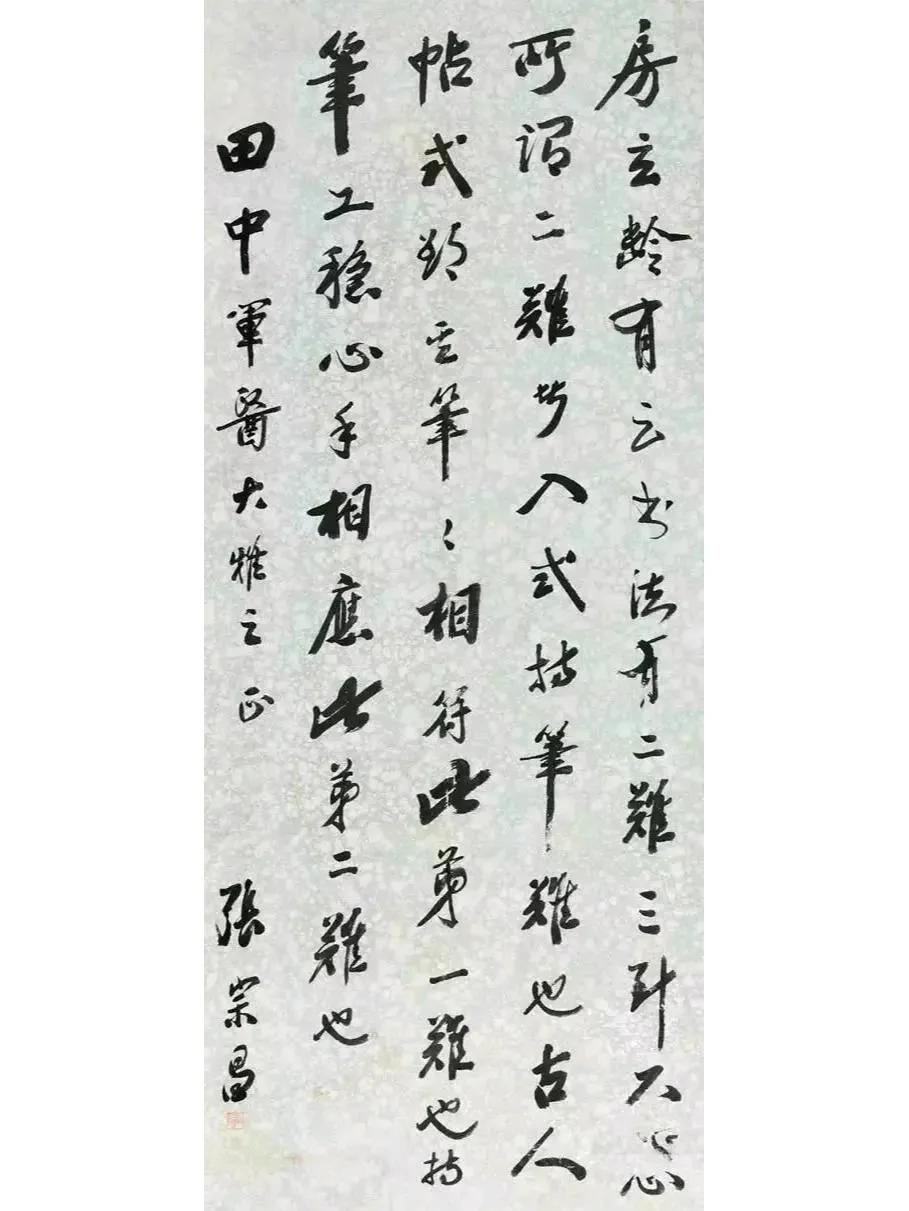 房玄齡有云书法有二難三到不
所謂二難入式持筆難也古人
帖式筆〻相符此第一難也持
筆工穩心手相應此第二難也
田中軍醫大雅之正 張宗昌